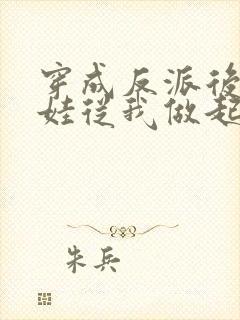 穿成反派後
娃從我做起
朱兵